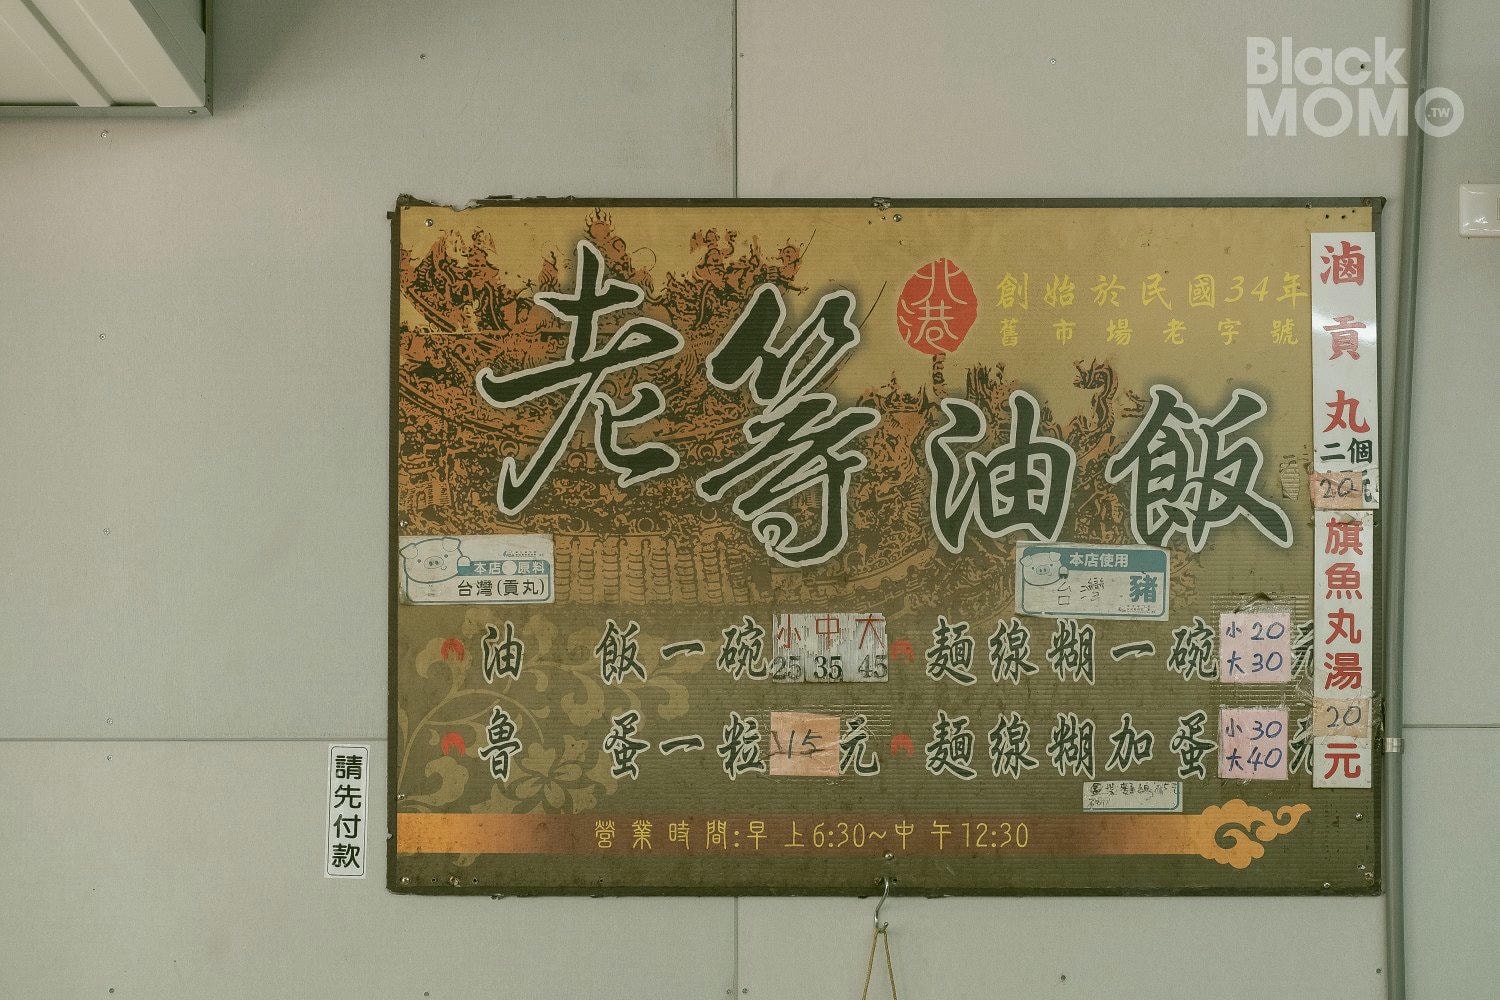 Black
MOMO.TW
北港
創始於民國34年
舊市場老字號
老等油飯
本店 原料
台灣(貢丸)
本店使用
台灣 豬
油飯一碗 小 中 大
25 35 45
麵線糊一碗 小20 元
大30
魯蛋一粒 15 元
麵線糊加蛋 小30 元
大40
營業時間:早上6:30~中午12:30
滷貢丸
二個
20元
旗魚丸湯
20
元
請先付款